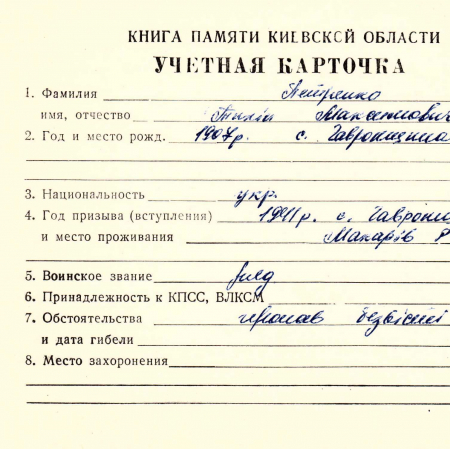 КНИГА ПАМЯТИ КИЕВСКОЙ ОБЛАСТИ
УЧЕТНАЯ КАРТОЧКА
1. Фамилия Петренко
имя, отчество Максимович
2. Год и место рожд. 1907р. с. Гавронщина
3. Национальность укр.
4. Год призыва (вступления) 1941р. с.
и место проживания Макарів
5. Воинское звание
6. Принадлежность к КПСС, ВЛКСМ
7. Обстоятельства пропав безвісті
и дата гибели
8. Место захоронения